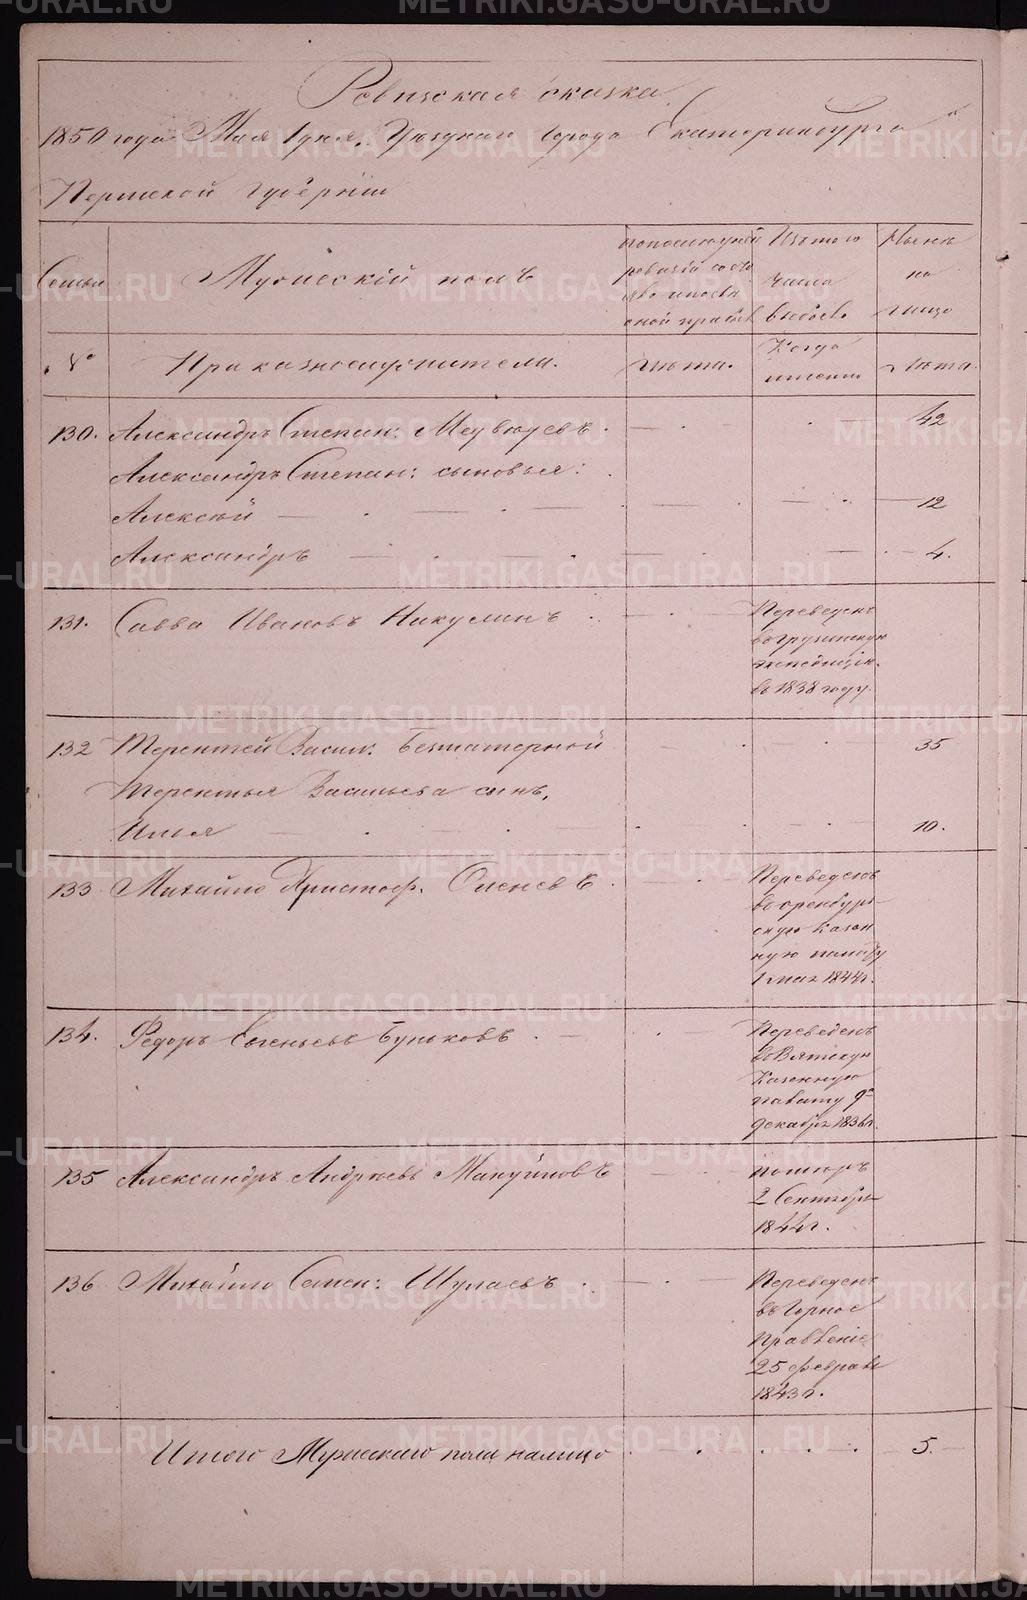 Ревизская сказка
1850 года Мая 1 дня. Уездного города Екатеринбурга
Пермской губернiи
Семьи
Мужескiй полъ
по последней ревизiи состояло
Изъ того числа выбыло
Ныне на лицо
№
Приказнослужители.
лѣта.
Когда именно
лѣта.
130. Александръ Степан: Медведевъ 42
Александръ Степан: сыновья:
Алексѣй 12
Александръ 4.
131. Савва Ивановъ Никулинъ
Переведенъ
в грузинскую
экспедицiю
въ 1838 году.
132 Терентей Васил: Безматерной 35
Терентья Васильева сынъ,
Илья 10.
133 Михайло Христоф. Оленевъ
Переведенъ
в оренбург
скую казен
ную палату
1 мая 1844 г.
134. Федоръ Евгеньевъ Буньковъ
Переведенъ
в Вятскую
Казенную
палату 9го
декабря 1836 г.
135 Александръ Андреевъ Мануйловъ
помѣръ
2 Сентября
1844 г.
136 Михайло Семен: Шулаевъ
Переведенъ
въ Горное
Правленiе
25 февраля
1843 г.
Итого Мужескаго пола налицо 5.
METRIKI.GASO-URAL.RU